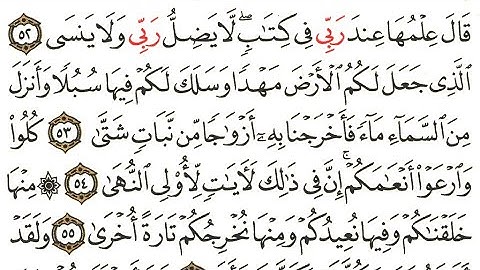 قَالَ عِلْمُهَا عِندَ رَبِّي فِي كِتَٰبٖۖ لَّا يَضِلُّ رَبِّي وَلَا يَنسَى ٥٢
ٱلَّذِي جَعَلَ لَكُمُ ٱلْأَرْضَ مَهْدٗا وَسَلَكَ لَكُمْ فِيهَا سُبُلٗا وَأَنزَلَ
مِنَ ٱلسَّمَآءِ مَآءٗ فَأَخْرَجْنَا بِهِۦٓ أَزْوَٰجٗا مِّن نَّبَاتٖ شَتَّىٰ ٥٣ كُلُوا۟
وَٱرْعَوْا۟ أَنْعَٰمَكُمْۚ إِنَّ فِي ذَٰلِكَ لَأٓيَٰتٖ لِّأُو۟لِي ٱلنُّهَىٰ ٥٤ ۞ مِنْهَا
خَلَقْنَٰكُمْ وَفِيهَا نُعِيدُكُمْ وَمِنْهَا نُخْرِجُكُمْ تَارَةً أُخْرَىٰ ٥٥ وَلَقَدْ